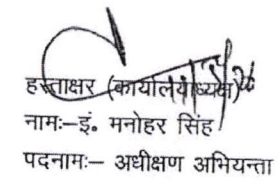 हस्ताक्षर (कार्यालयाध्यक्ष)
नामः–इं. मनोहर सिंह
पदनामः– अधीक्षण अभियन्ता